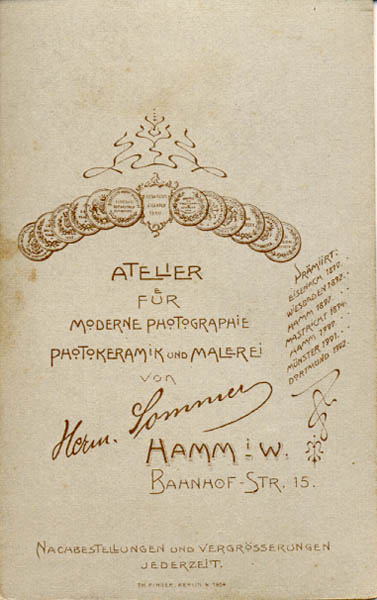 ATELIER
FÜR
MODERNE PHOTOGRAPHIE
PHOTOKERAMIK UND MALEREI
VON
Herm. Sommer
HAMM i W.
BAHNHOF-STR. 15.
PRÄMIIRT:
EISENACH 1890.
WIESBADEN 1892.
HAMM 1892.
MASTRICHT 1894.
HAMM
MÜNSTER 1901.
DORTMUND 1902.
NACHBESTELLUNGEN UND VERGRÖSSERUNGEN
JEDERZEIT.
BERLIN